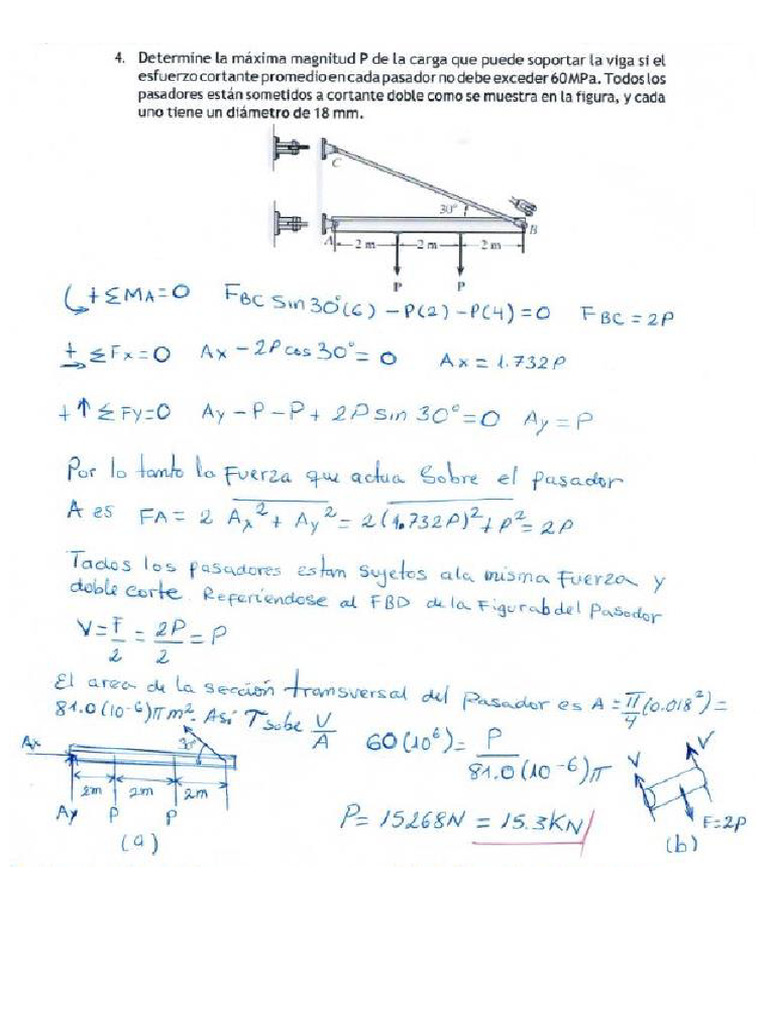 4. Determine la máxima magnitud P de la carga que puede soportar la viga si el
esfuerzo cortante promedio en cada pasador no debe exceder 60MPa. Todos los
pasadores están sometidos a cortante doble como se muestra en la figura, y cada
uno tiene un diámetro de 18 mm.
C
30°
A
B
2 m 2 m 2 m
P P
+ΣMA=0 FBC Sin30°(6) -P(2)-P(4)=0 FBC=2P
+ ΣFx=0 Ax-2Pcos30°=0 Ax=1.732P
+↑ΣFy=0 Ay-P-P+2Psin30°=0 Ay=P
Por lo tanto la Fuerza que actua Sobre el pasador
A es FA= 2 Ax²+Ay²=2(1.732P)²+P²=2P
Todos los pasadores estam sujetos a la misma Fuerza y
doble corte. Referiendose al FBD de la Figura b del Pasador
V=F/2=2P/2=P
El area de la sección transversal del Pasador es A=π/4(0.018²)=
81.0(10-6)πm². Asi T sobe V/A 60(10⁶)=P/81.0(10-6)π
Ax 30°
2m 2m 2m
Ay P P
(a)
P=15268N=15.3KN
V V
F=2P
(b)